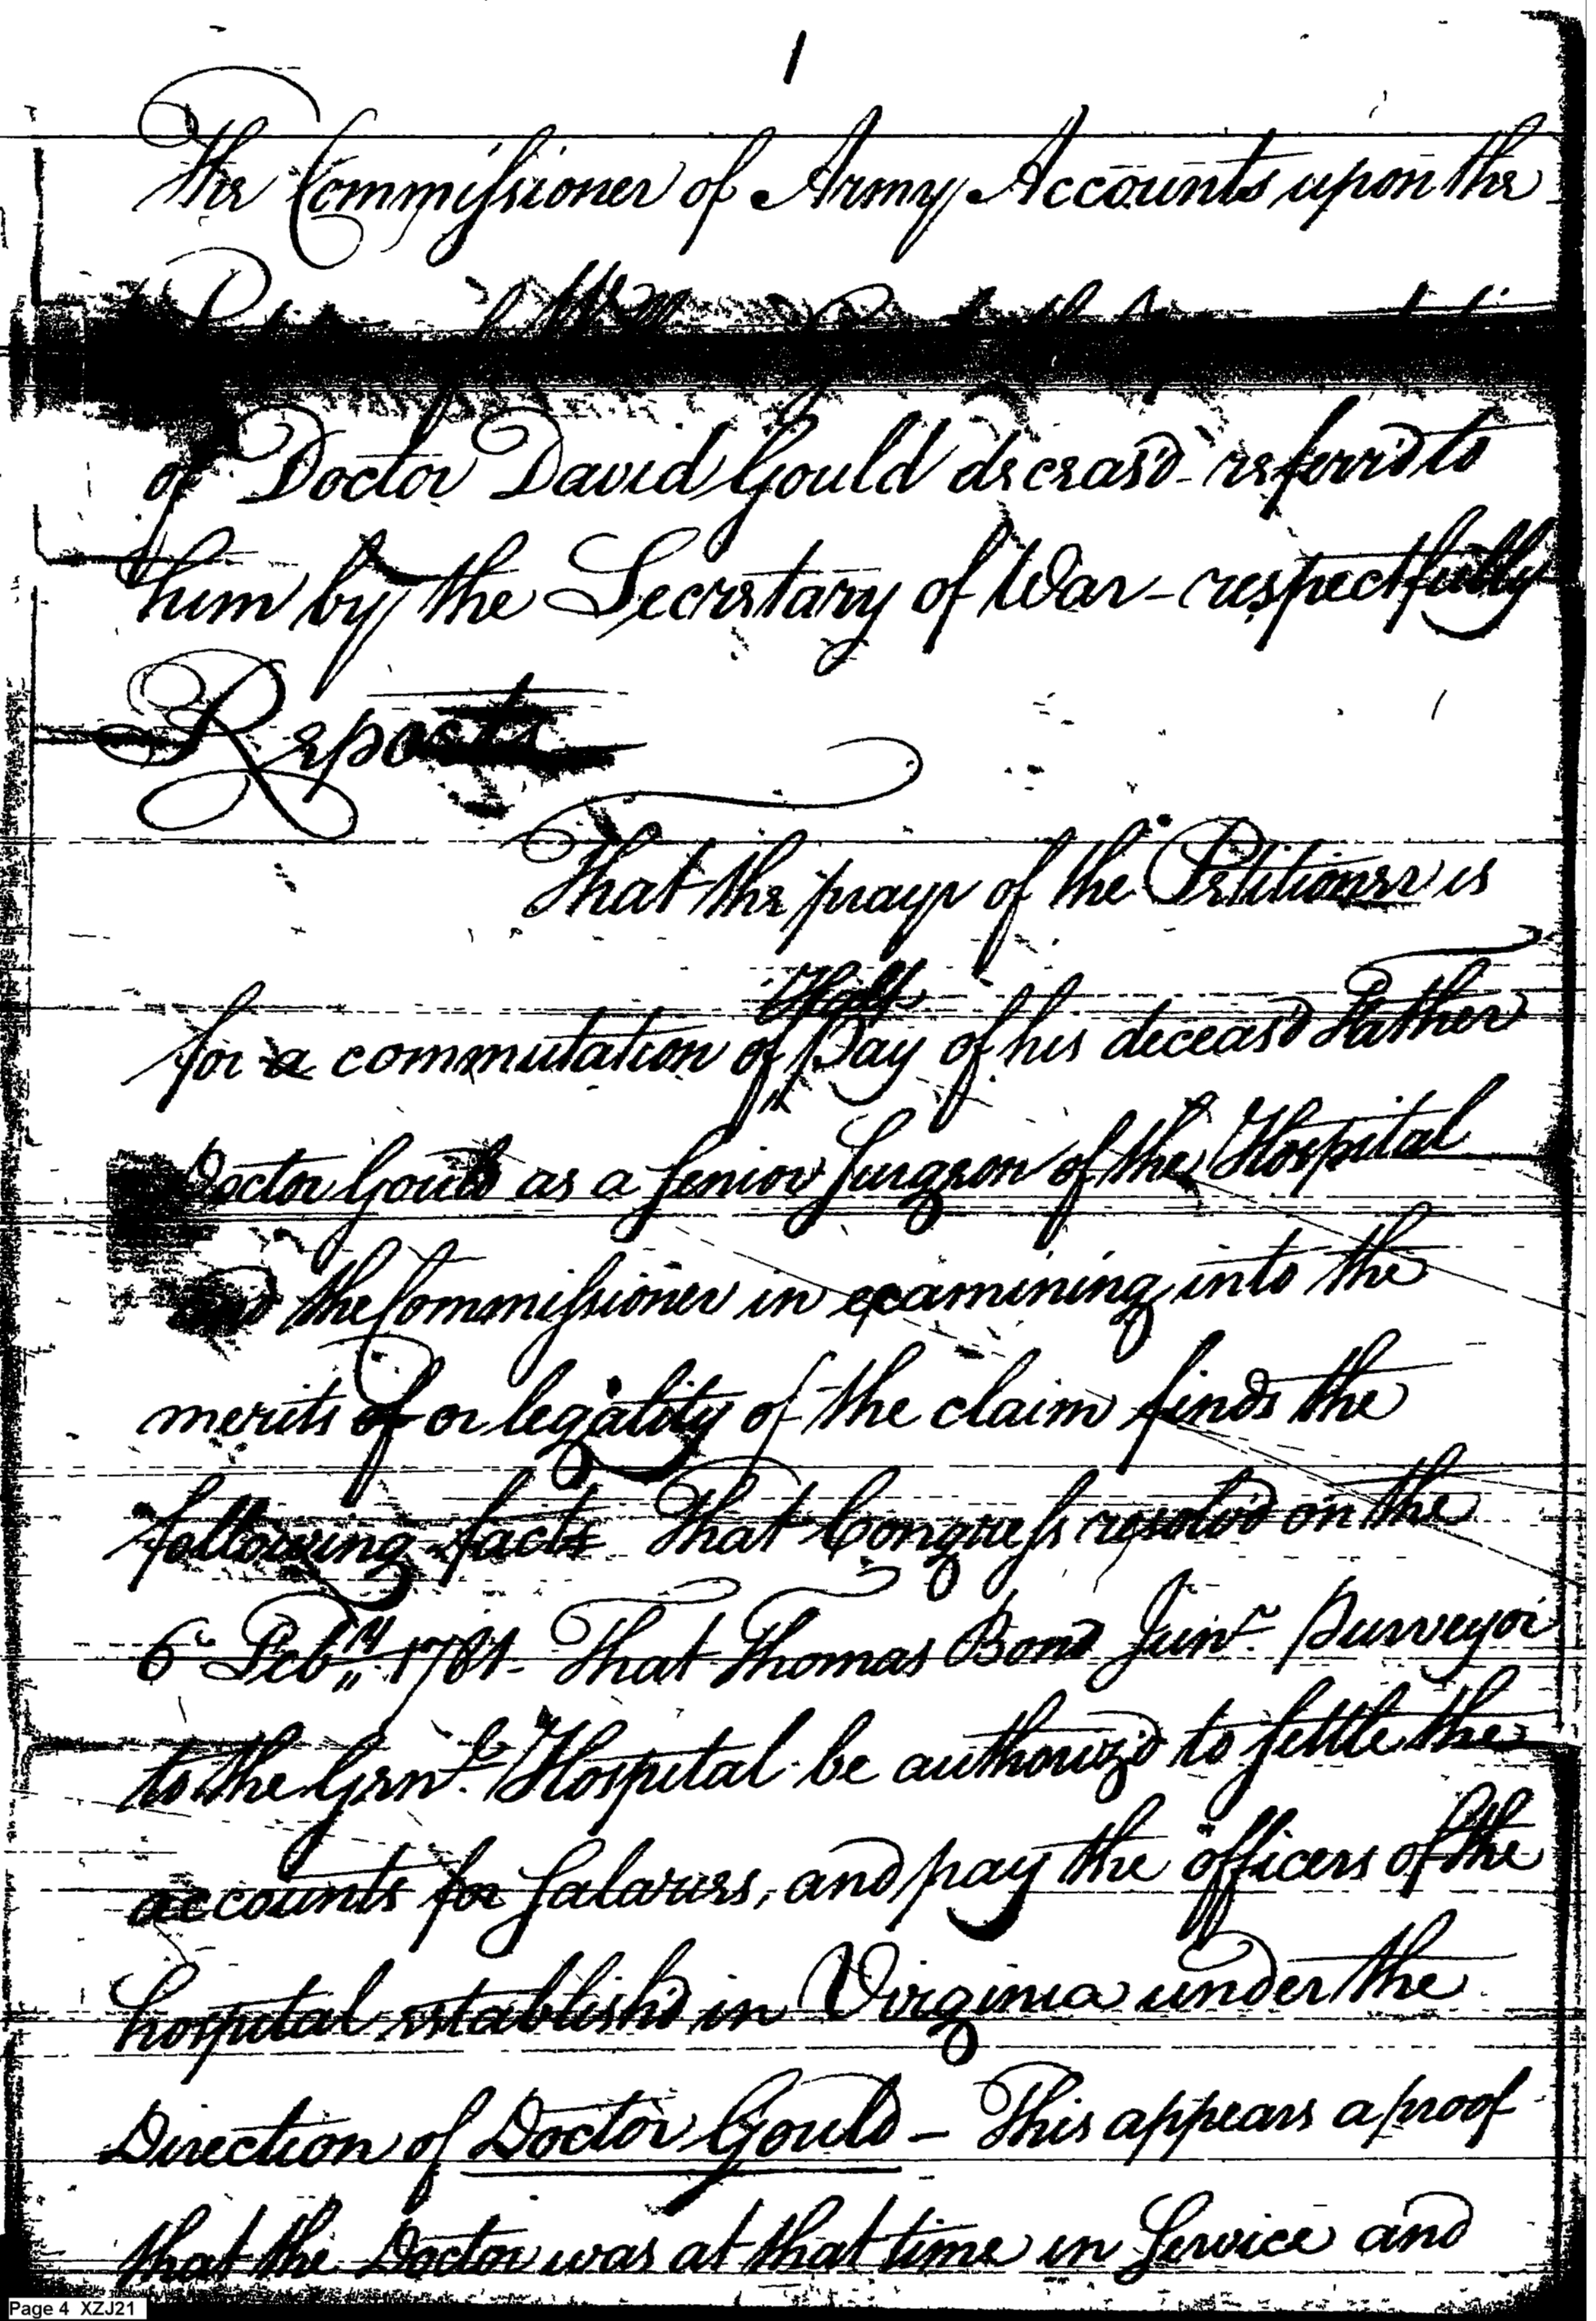 1
The Commissioner of Army Accounts upon the
of Doctor David Gould deceas'd referr'd to
him by the Secretary of War - respectfully
Reports
That the prayr of the Petitioner is
Half
for a commutation of Pay of his deceas'd Father
Doctor Gould as a Senior Surgeon of the Hospital
and the Commissioner in examining into the
merits of or legality of the claim finds the
following facts That Congress resolv'd on the
6th Feby 1781 - That Thomas Bond Junr. Purveyor
to the Genl. Hospital be authoriz'd to settle the
accounts for Salaries, and pay the officers of the
hospital establish'd in Virginia under the
Direction of Doctor Gould - This appears a proof
that the Doctor was at that time in Service and
Page 4 XZJ21